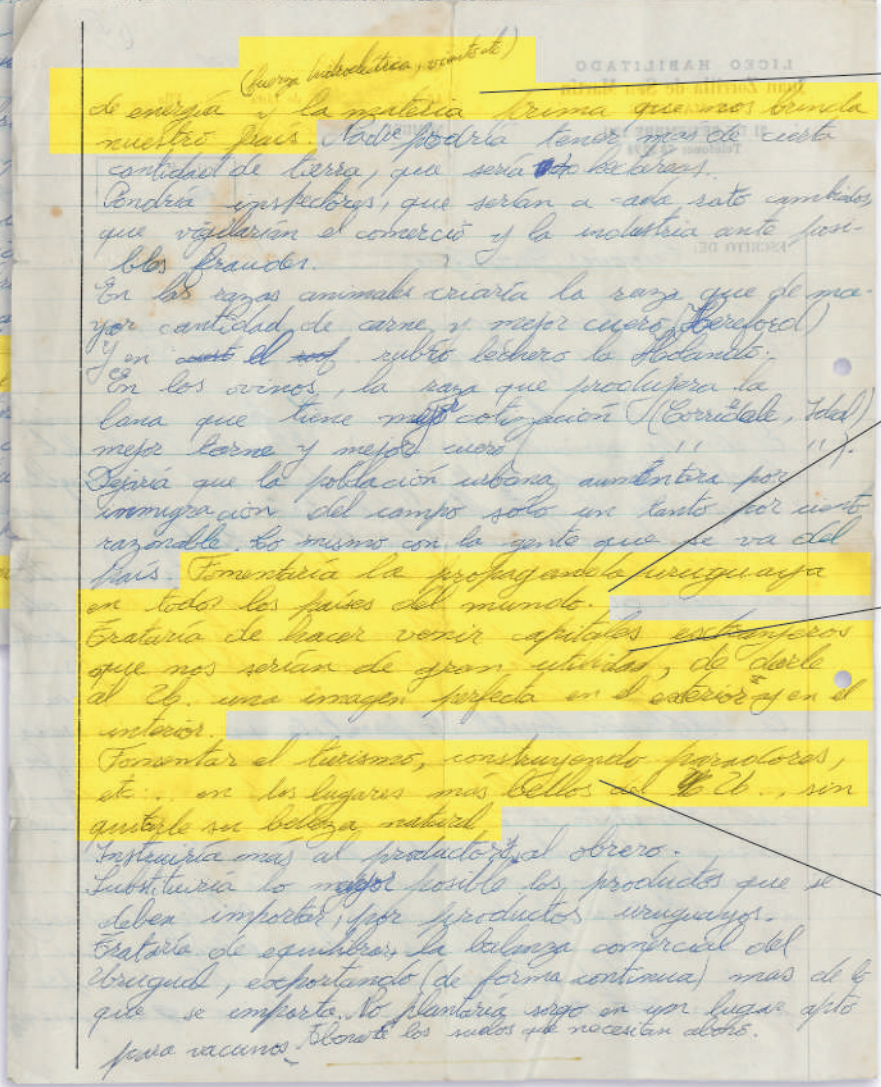 (fuerza hidroeléctrica, viento etc)
de energía y la materia prima que nos brinda
nuestro país. Nadie podría tener más de cierta
cantidad de tierra, que sería hectáreas.
Pondría inspectores, que serían a cada rato cambiados,
que vigilarían el comercio y la industria ante posi-
bles fraudes.
En las razas animales criaría la raza que de ma-
yor cantidad de carne y mejor cuero (Hereford)
Y en el rubro lechero la Holando.
En los ovinos, la raza que produjera la
lana que tiene mejor cotización (Corriedale, Ideal)
mejor carne y mejor cuero ( " " ).
Dejaría que la población urbana aumentara por
inmigración del campo sólo un tanto por ciento
razonable. Lo mismo con la gente que se va del
país. Fomentaría la propaganda uruguaya
en todos los países del mundo.
Trataría de hacer venir capitales extranjeros
que nos serían de gran utilidad, de darle
al Ur. una imagen perfecta en el exterior y en el
interior.
Fomentar el turismo, construyendo paradores,
etc... en los lugares más bellos del Ur., sin
quitarle su belleza natural
Instruiría más al productor y al obrero.
Substituiría lo mayor posible los productos que se
deben importar, por productos uruguayos.
Trataría de equilibrar la balanza comercial del
Uruguay, exportando (de forma continua) mas de lo
que se importa. No plantaría sorgo en un lugar apto
para vacunos. Abonaré los suelos que necesitan abono.
LICEO HABILITADO
Juan Zorrilla de San Martín
ESCRITO DE: